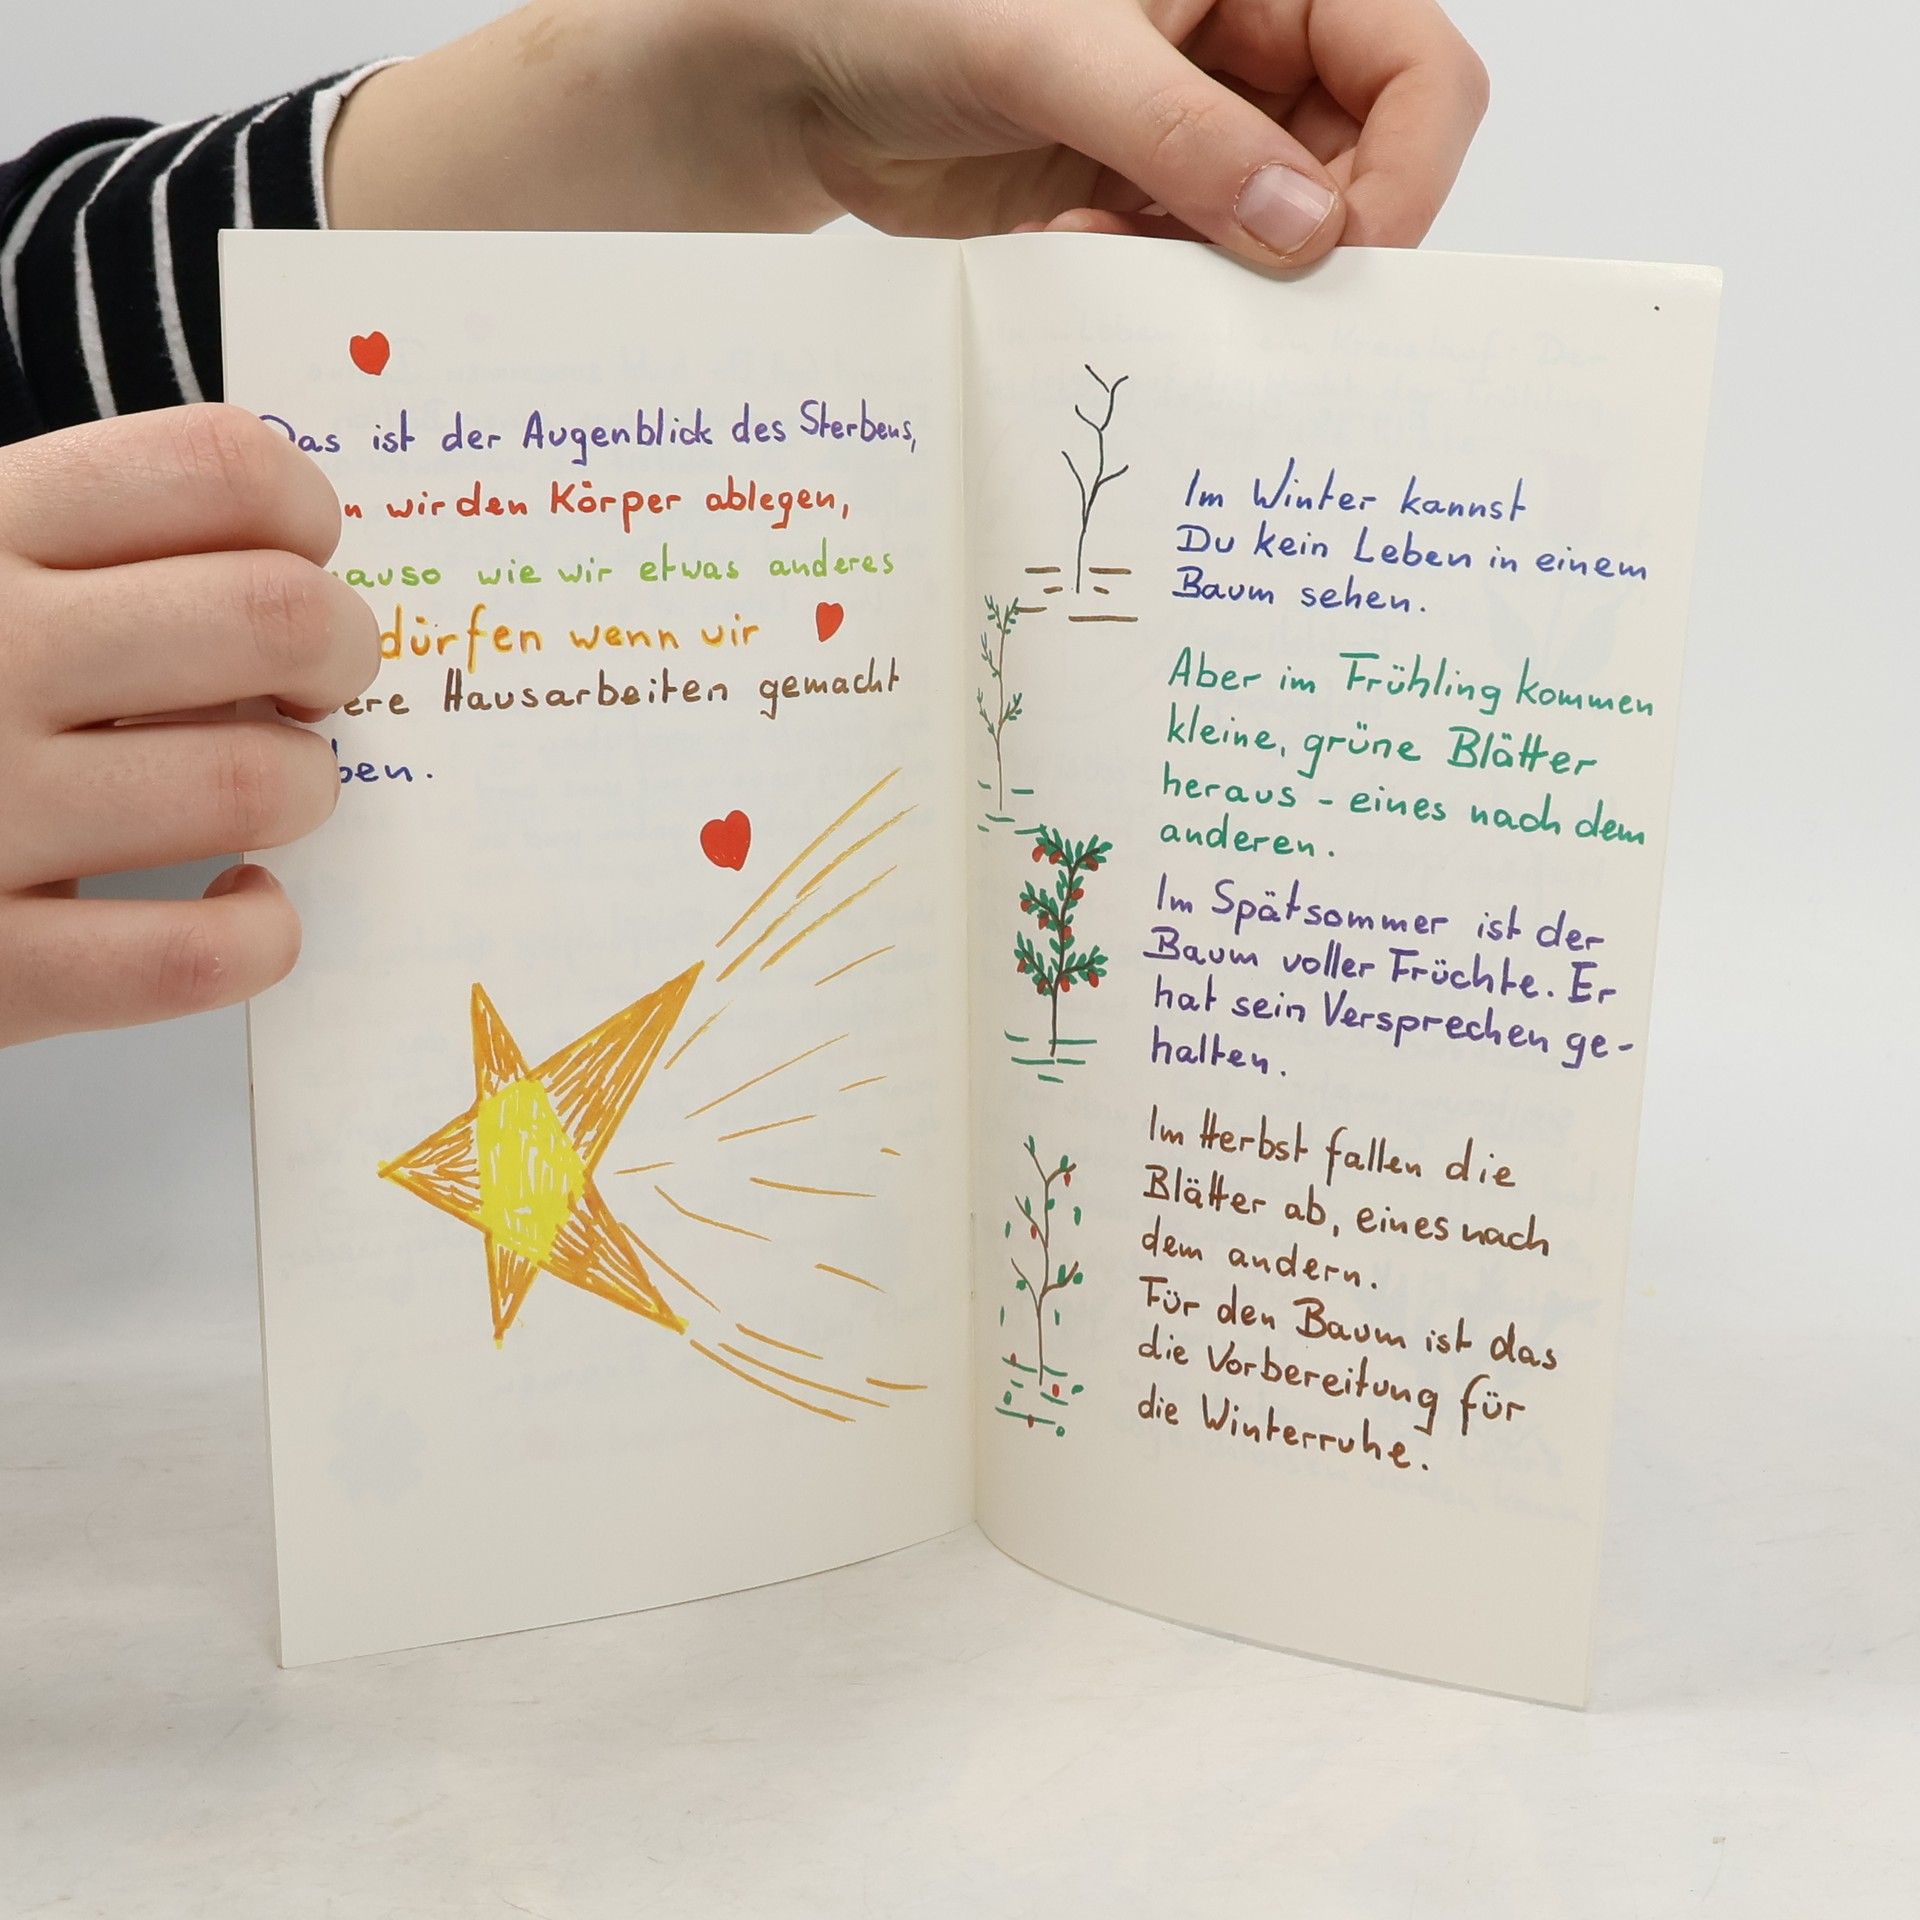 Das ist der Augenblick des Sterbens,
wir den Körper ablegen,
wie wir etwas anderes
dürfen wenn wir
Hausarbeiten gemacht
Im Winter kannst
Du kein Leben in einem
Baum sehen.
Aber im Frühling kommen
kleine, grüne Blätter
heraus - eines nach dem
anderen.
Im Spätsommer ist der
Baum voller Früchte. Er
hat sein Versprechen ge-
halten.
Im Herbst fallen die
Blätter ab, eines nach
dem andern.
Für den Baum ist das
die Vorbereitung für
die Winterruhe.